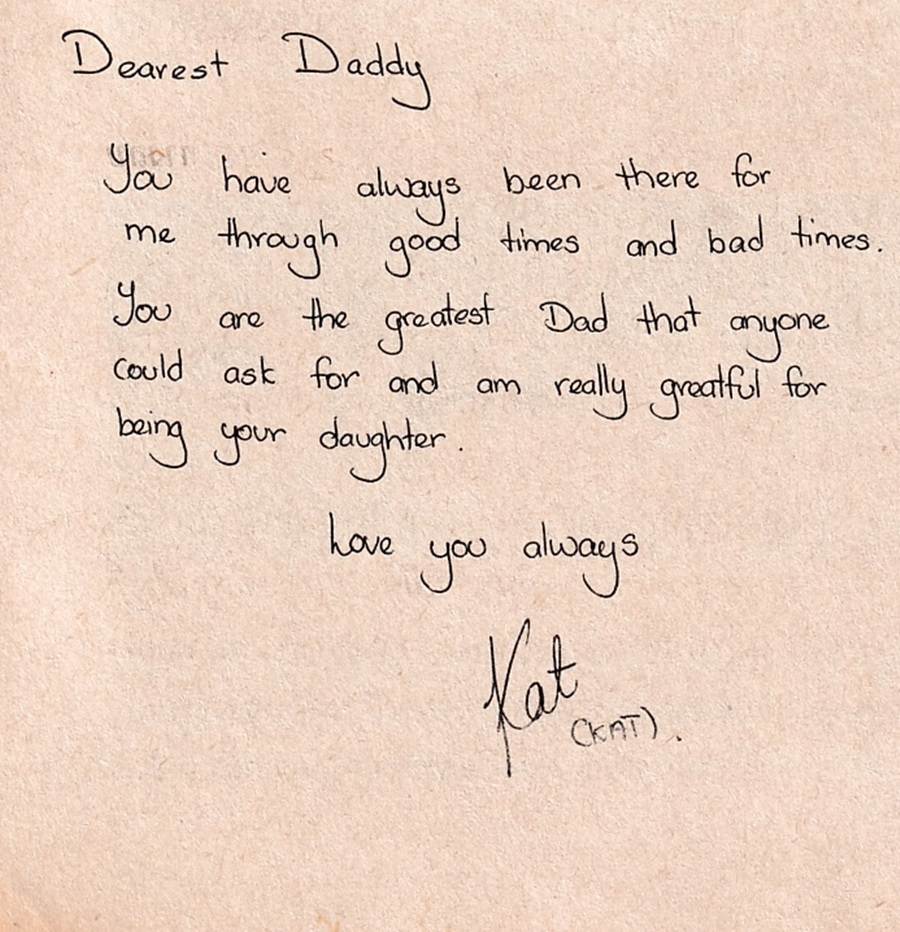 Dearest Daddy
You have always been there for
me through good times and bad times.
You are the greatest Dad that anyone
could ask for and am really greatful for
being your daughter.
Love you always
Kat
(KAT).